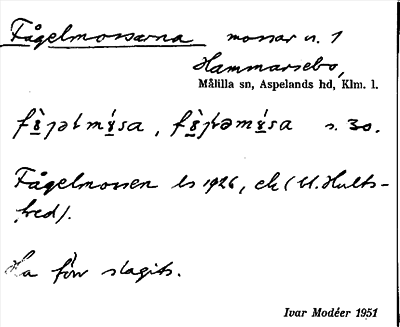 Fågelmossarna mossar n. 1
Hammarsebo,
Målilla sn, Aspelands hd, Klm. l.
s. 30.
Fågelmossen ls 1926, ek (bl. Hults-
fred).
Ha förr slagits.
Ivar Modéer 1951